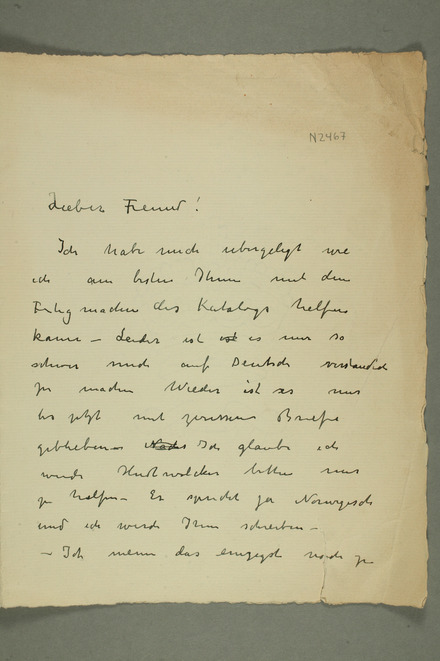 N2467
Lieber Freund!
Ich habe mich übergelegt wie
ich am besten Ihnen mit dem
Fertigmachen des Katalogs helfen
kann – Leider ist ist es mir so
schwer mich auf Deutsch verständlich
zu machen Wieder ist es nur
bis jetzt mit zerissene Briefe
geblieben – Ich glaube ich
werde bitten mir
zu helfen – Er spricht ja Norwegisch
und ich werde Ihm schreiben –
– Ich meine das einzigste